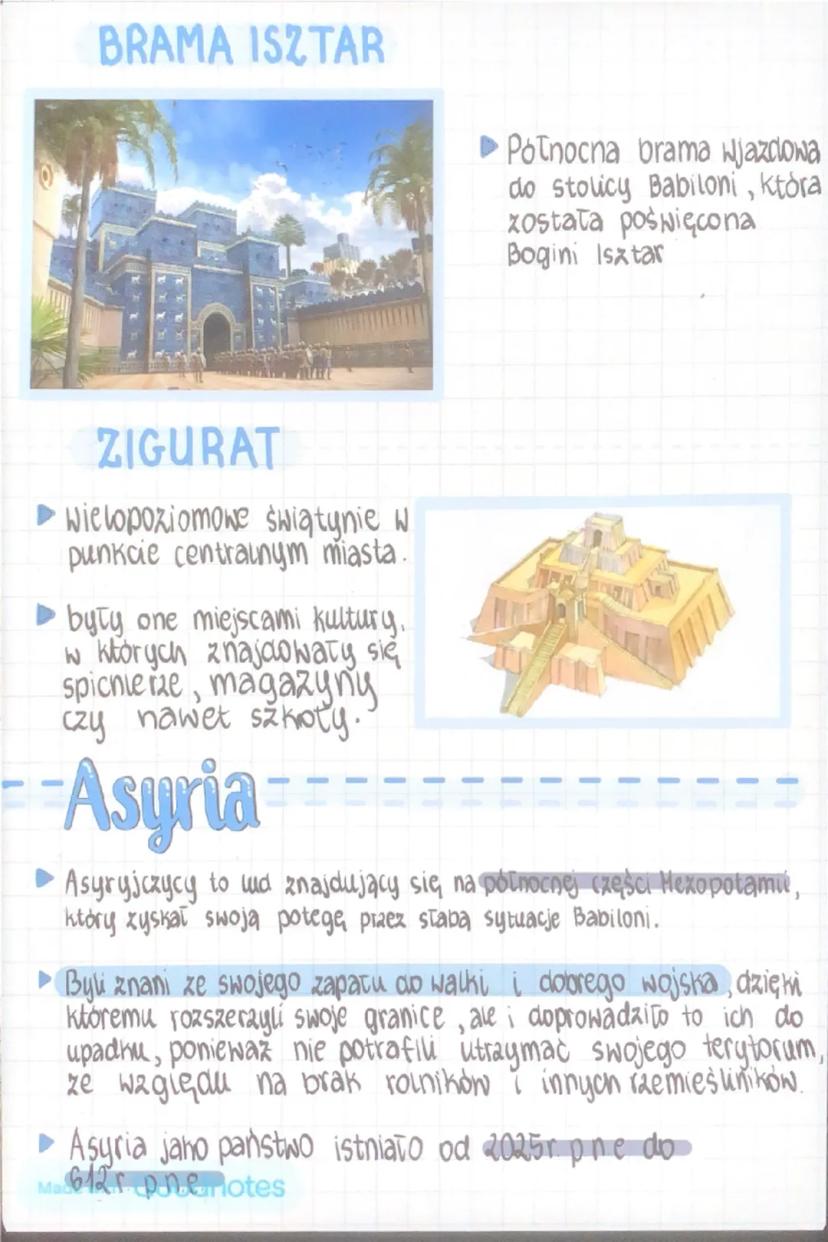 BRAMA ISZTAR
▶ Północna brama wjazdowa
do stolicy Babiloni, która
została poświęcona
Bogini Isztar
ZIGURAT
▶ Wielopoziomowe świątynie w
punkcie centralnym miasta.
▶ były one miejscami kultury,
w których znajdowały się
spichlerze, magazyny
czy nawet szkoły.
Asyria
▶ Asyryjczycy to lud znajdujący się na północnej części Mezopotamii,
który zyskał swoją potęgę przez słabą sytuacje Babiloni.
▶ Byli znani ze swojego zapału do walki i dobrego wojska, dzięki
któremu rozszerzyli swoje granice, ale i doprowadziło to ich do
upadku, ponieważ nie potrafili utrzymać swojego terytorum,
ze względu na brak rolników i innych rzemieślników.
▶ Asyria jako państwo istniało od 2025r. p n e do
612 r. p n e
Made with Goodnotes